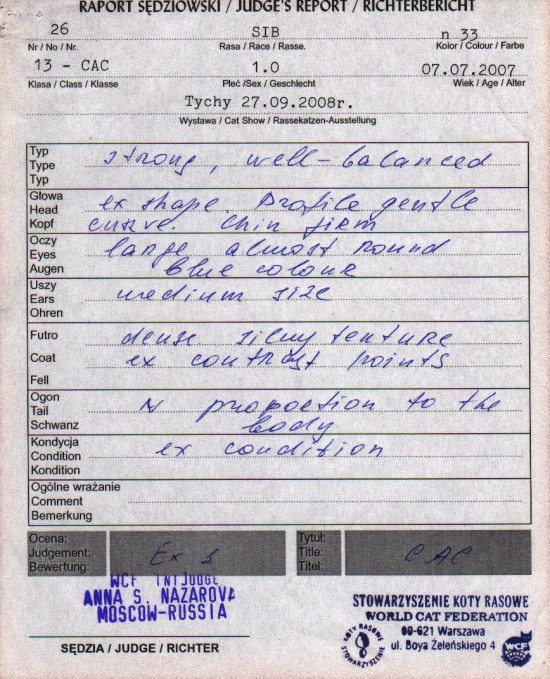 RAPORT SĘDZIOWSKI / JUDGE'S REPORT / RICHTERBERICHT
26 SIB n 33
Nr / No / Nr. Rasa / Race / Rasse. Kolor / Colour / Farbe
13 - CAC 1.0 07.07.2007
Klasa / Class / Klasse Płeć /Sex / Geschlecht Wiek / Age / Alter
Tychy 27.09.2008r.
Wystawa / Cat Show / Rassekatzen-Ausstellung
Typ
Type strong, well-balanced
Typ
Głowa ex shape. Profile gentle
Head
Kopf curve. Chin firm
Oczy large almost round
Eyes
Augen blue colour
Uszy medium size
Ears
Ohren
Futro dense silky texture
Coat ex contrast points
Fell
Ogon
Tail proportion to the
Schwanz body
Kondycja ex condition
Condition
Kondition
Ogólne wrażanie
Comment
Bemerkung
Ocena: Tytuł:
Judgement: Ex 1 Title: CAC
Bewertung: Titel:
WCF INTJUDGE
ANNA S. NAZAROVA
MOSCOW-RUSSIA
SĘDZIA / JUDGE / RICHTER
STOWARZYSZENIE KOTY RASOWE
WORLD CAT FEDERATION
00-621 Warszawa
ul. Boya Żeleńskiego 4
KOTY RASOWE
STOWARZYSZENIE
WCF